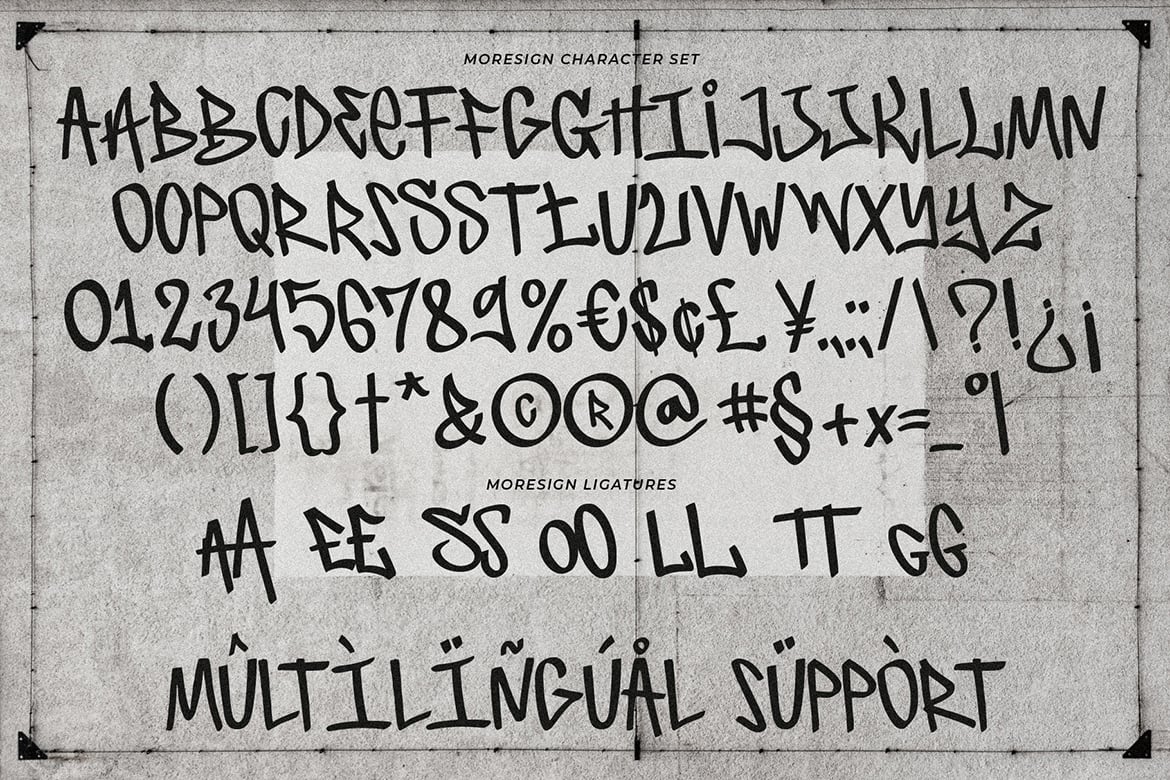 MORESIGN CHARACTER SET
AABBCDEeTFFGGHIiJJJKLLMN
OOPQRRSSSTŁU2VWWXyyZ
0123456789%€$¢£¥.,:;/\?!¿¡
()[]{}†*&©®@#§+x=_°|
MORESIGN LIGATURES
AA EE SS OO LL TT GG
MÛLTÌLÏÑGÚÅL SÜPPÒRT